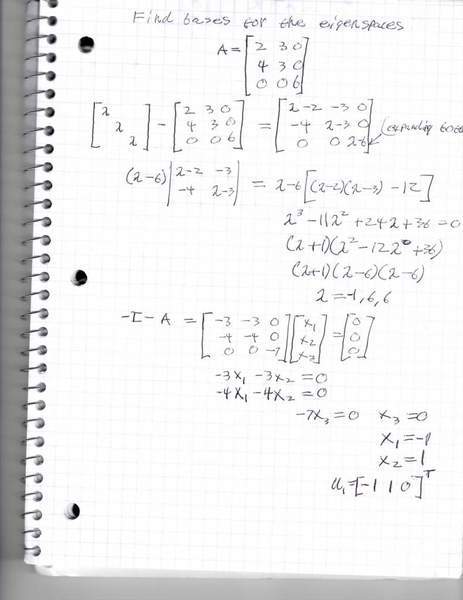 Find bases for the eigenspaces
A = [2 3 0
4 3 0
0 0 6]
[λ
λ
λ] - [2 3 0
4 3 0
0 0 6] = [λ-2 -3 0
-4 λ-3 0
0 0 λ-6] (expanding
(λ-6) |λ-2 -3
-4 λ-3| = λ-6[(λ-2)(λ-3) -12]
λ³ -11λ² +24λ+36 = 0
(λ+1)(λ² -12λ +36)
(λ+1)(λ-6)(λ-6)
λ = -1, 6, 6
-I - A = [-3 -3 0
-4 -4 0
0 0 -7] [x₁
x₂
x₃] = [0
0
0]
-3x₁ -3x₂ = 0
-4x₁ -4x₂ = 0
-7x₃ = 0 x₃ = 0
x₁ = -1
x₂ = 1
u₁ = [-1 1 0]ᵀ